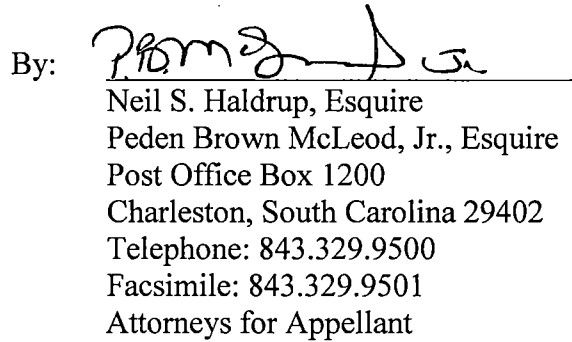 By: P.B. McLeod Jr
Neil S. Haldrup, Esquire
Peden Brown McLeod, Jr., Esquire
Post Office Box 1200
Charleston, South Carolina 29402
Telephone: 843.329.9500
Facsimile: 843.329.9501
Attorneys for Appellant